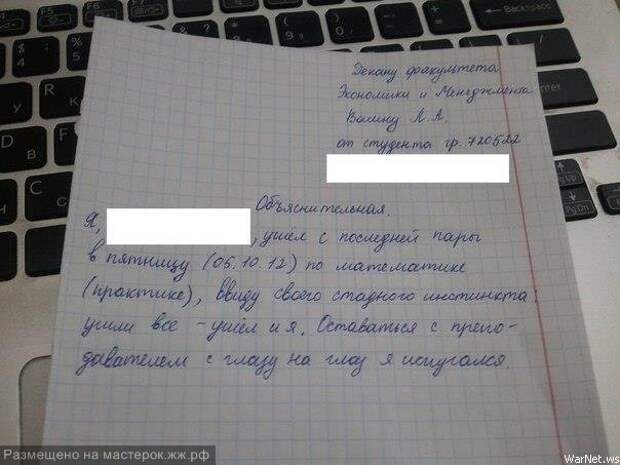 Декану факультета
Экономики и Менеджмента
Вашину Л.А.
от студента гр. 720522
Объяснительная.
Я, , ушёл с последней пары
в пятницу (05.10.12) по математике
(практике), ввиду своего стадного инстинкта:
ушли все - ушёл и я. Оставаться с препо-
давателем с глазу на глаз я испугался.
Размещено на мастерок.жж.рф
WarNet.ws